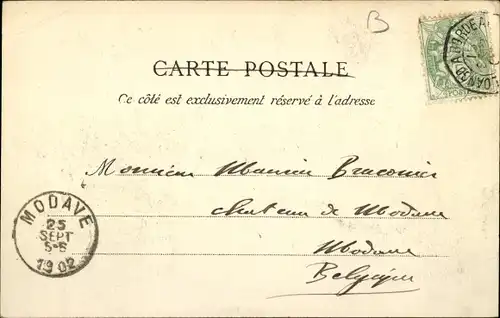 B
CARTE POSTALE
Ce côté est exclusivement réservé à l'adresse
Monsieur Maurice Braconier
chateau de Modave
Modave
Belgique
MODAVE
25
SEPT
5-6
1902